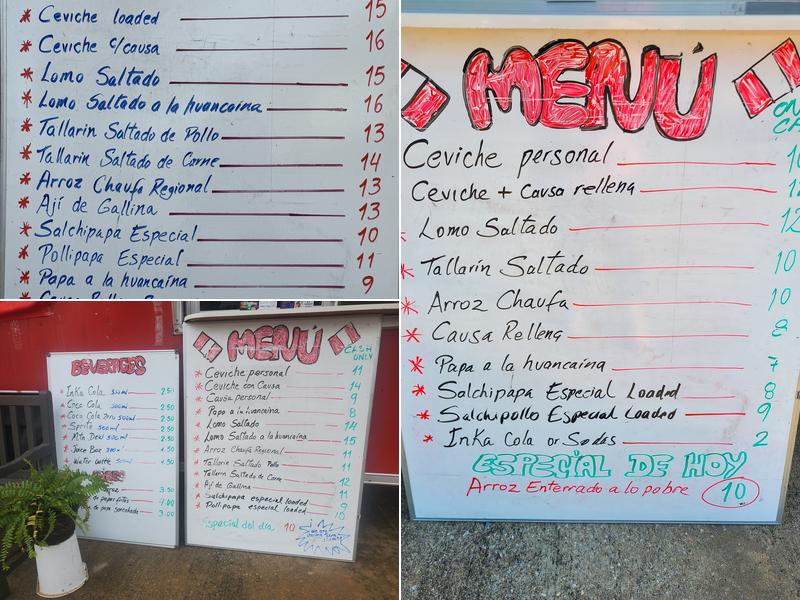 * Ceviche loaded 15
* Ceviche c/causa 16
* Lomo Saltado 15
* Lomo Saltado a la huancaina 16
* Tallarin Saltado de Pollo 13
* Tallarin Saltado de Carne 14
* Arroz Chaufa Regional 13
* Ají de Gallina 13
* Salchipapa Especial 10
* Pollipapa Especial 11
* Papa a la huancaína 9
MENÚ
Ceviche personal
Ceviche + Causa rellena
Lomo Saltado 12
* Tallarín Saltado 10
* Arroz Chaufa 10
* Causa Rellena 8
* Papa a la huancaina 7
* Salchipapa Especial Loaded 8
* Salchipollo Especial Loaded 9
* Inka Cola or Sodas 2
ESPECIAL DE HOY
Arroz Enterrado a lo pobre 10
BEVERAGES
* Inka Cola 2.50
* Coca Cola 2.50
* Coca Cola Zero 500ml 2.50
* Sprite 500ml 2.50
2.50
* Juice Box 1.50
* Water bottle 1.50
3.50
4.00
3.00
MENÚ
CASH ONLY
* Ceviche personal 11
* Ceviche con Causa 14
* Causa personal 9
* Papa a la huancaina 8
* Lomo Saltado 14
* Lomo Saltado a la huancaina 15
* Arroz Chaufa Regional 11
* Tallarin Saltado Pollo 11
* Tallarin Saltado de Carne 12
* Ají de Gallina 11
* Salchipapa especial loaded 9
* Pollipapa especial loaded 10
Especial del día 10